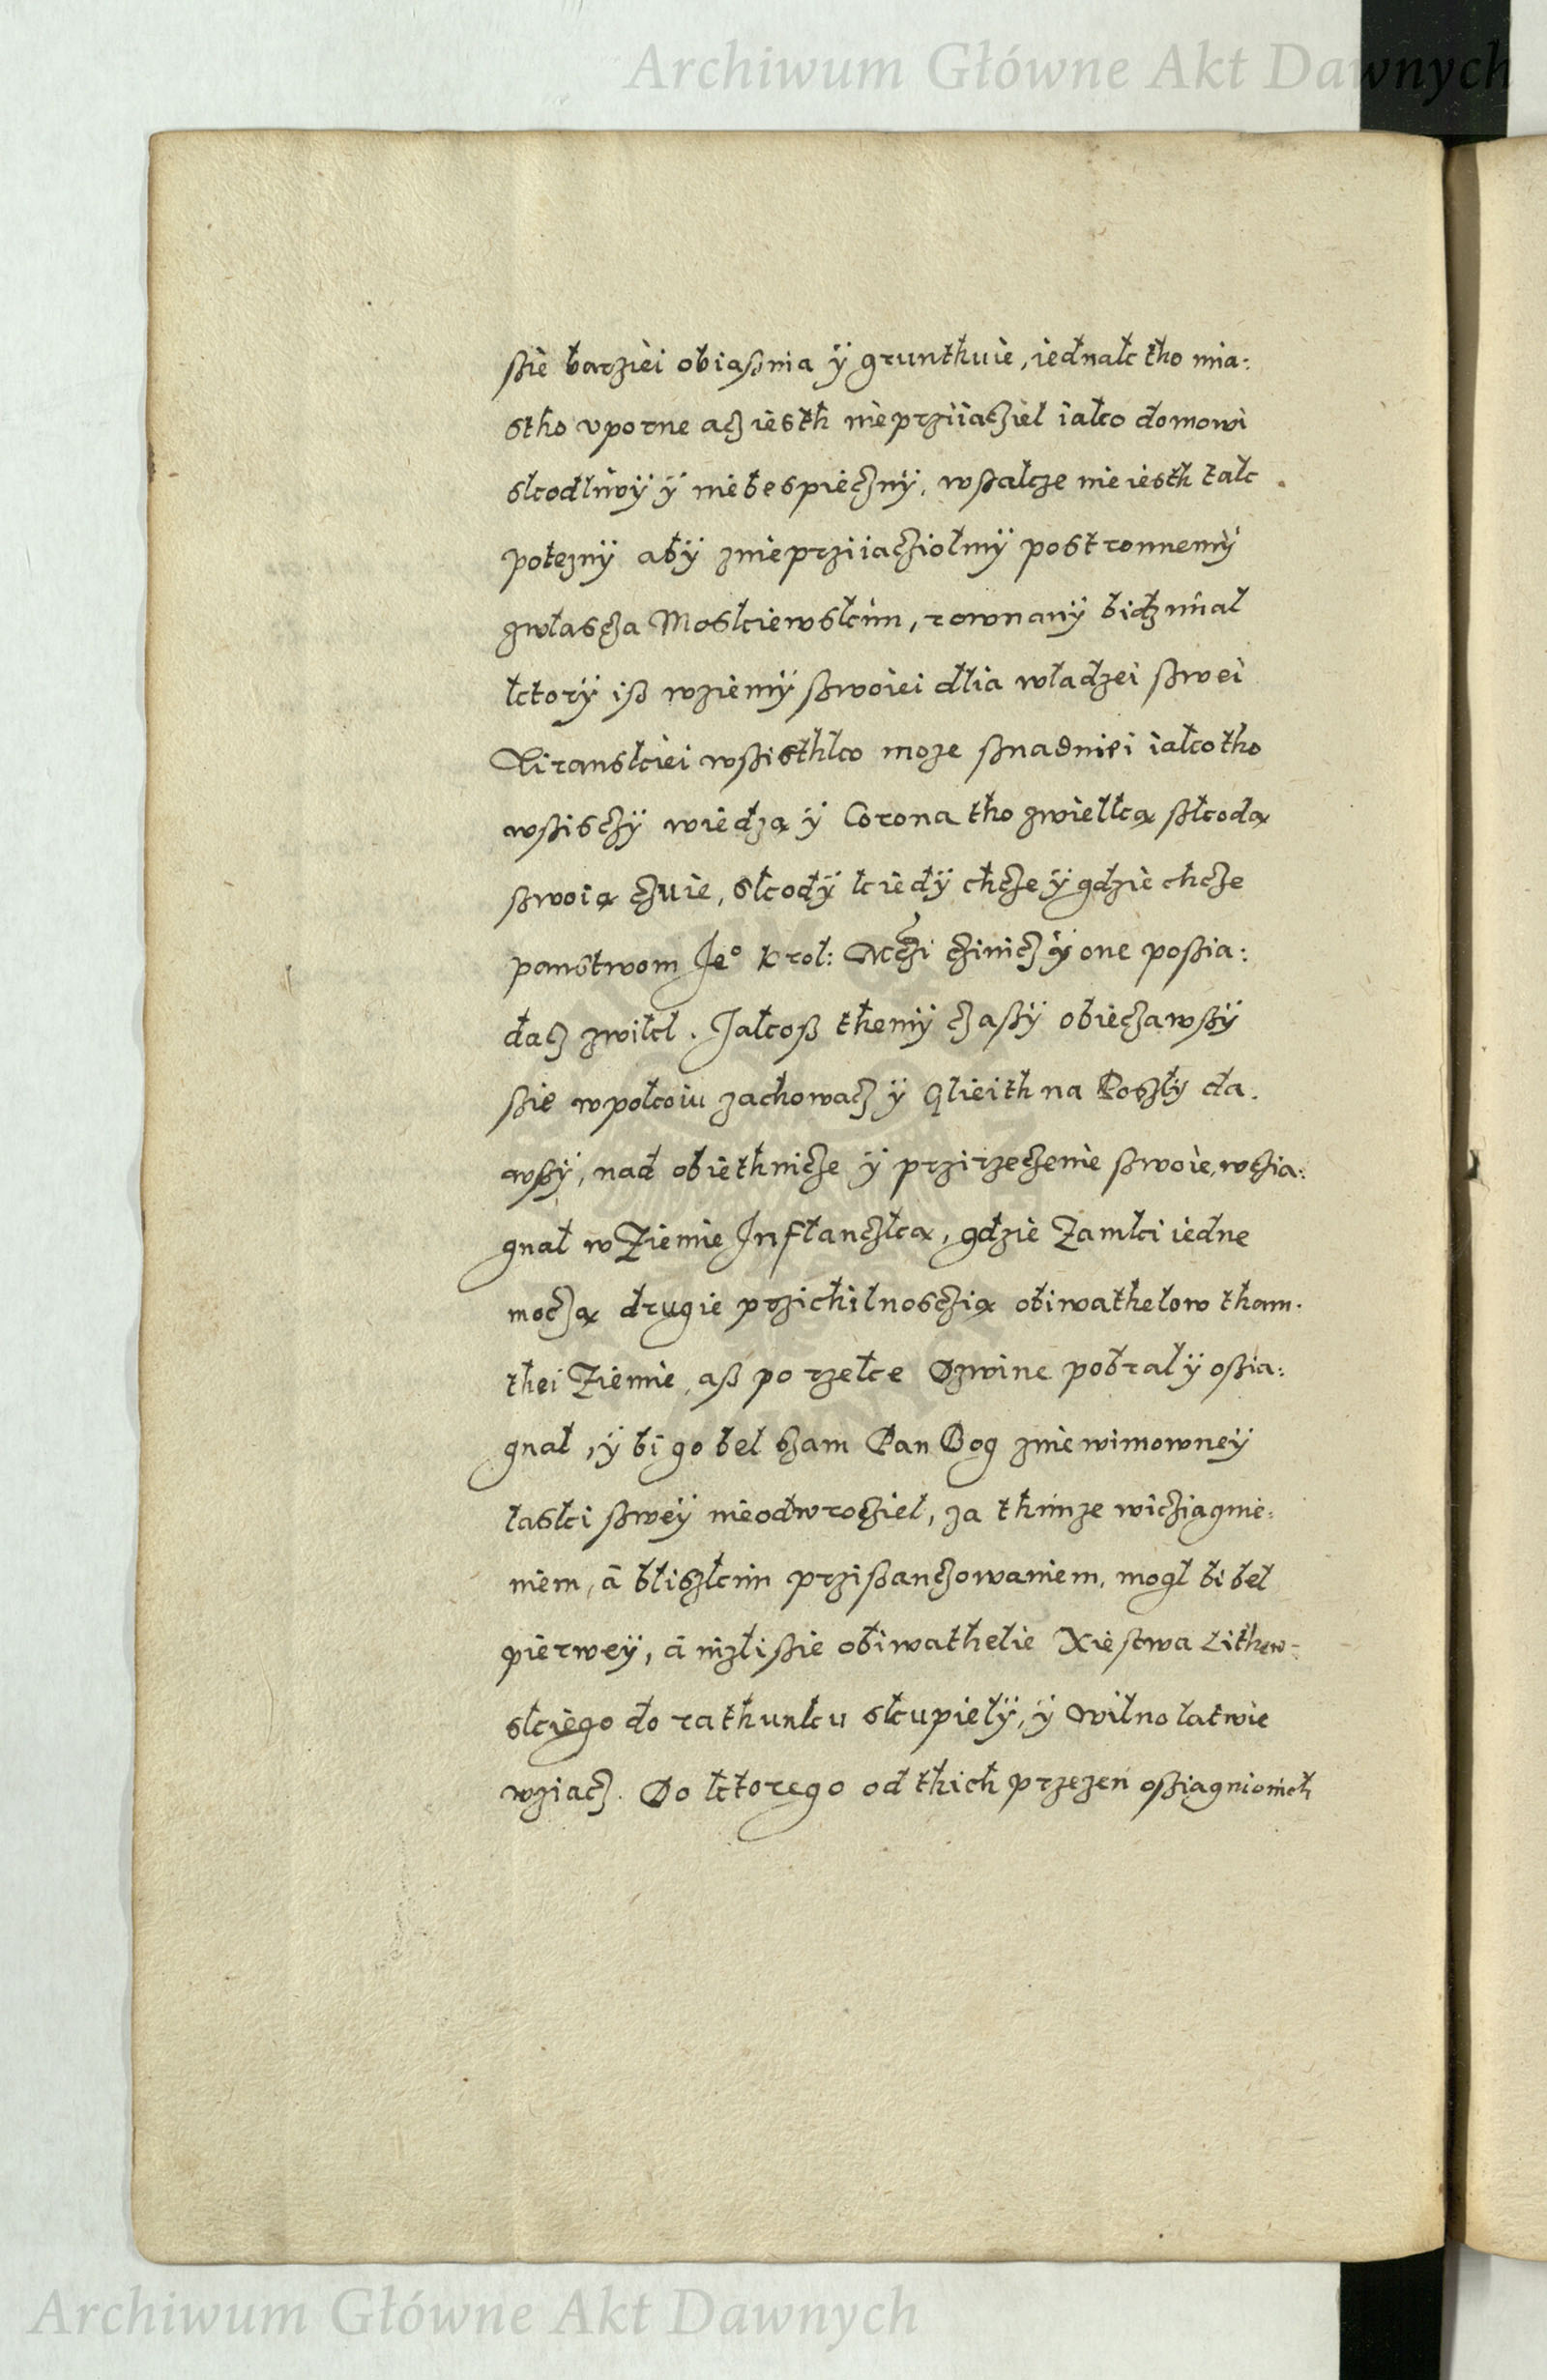 Archiwum Główne Akt Dawnych
ssie barziei obiassnia ÿ grunthuie, iednak tho mia:
stho vporne acz iesth nieprziiacziel iako domowi
skodliwÿ ÿ niebespiecznÿ, wssakze nie iesth tak
poteznÿ abÿ znieprziiacziolmÿ postronnemÿ
zwlascza Moskiewskim, rownanÿ bidz mial
ktorÿ iss wziemÿ sswoiei dlia wladzei sswei
Tiranskiei wssisthko moze ssnadniei iako tho
wssisczÿ wiedzą ÿ Corona tho zwielką sskodą
sswoią czuie, skodÿ kiedÿ chcze ÿ gdzie chcze
panstwom Je° Krol: Mczi czinicz ÿ one possia:
dacz zwikl. Jakoss themÿ czassÿ obieczawssÿ
ssie wpokoiu zachowacz ÿ Glieith na Poszlÿ da.
wssÿ, nad obiethnicze ÿ przirzeczenie sswoie, wczia:
gnal w Ziemie Inflanczką, gdzie Zamki iedne
moczą drugie przichilnosczią obiwathelow tham.
thei Ziemie, ass po rzeke Dzwine pobral ÿ ossia:
gnal, ÿ bi go bel szam Pan Bog zniewimowneÿ
laski ssweÿ nieodwrocziel, za thimze wicziagnie:
niem, a bliszkim przissanczowaniem, mogl bi bel
pierweÿ, a nizli ssie obiwathelie Xiestwa Lithew-
skiego do rathunku skupielÿ, ÿ Wilno latwie
wziacz. Do ktorego od thich przezen ossiagnionich
Archiwum Główne Akt Dawnych